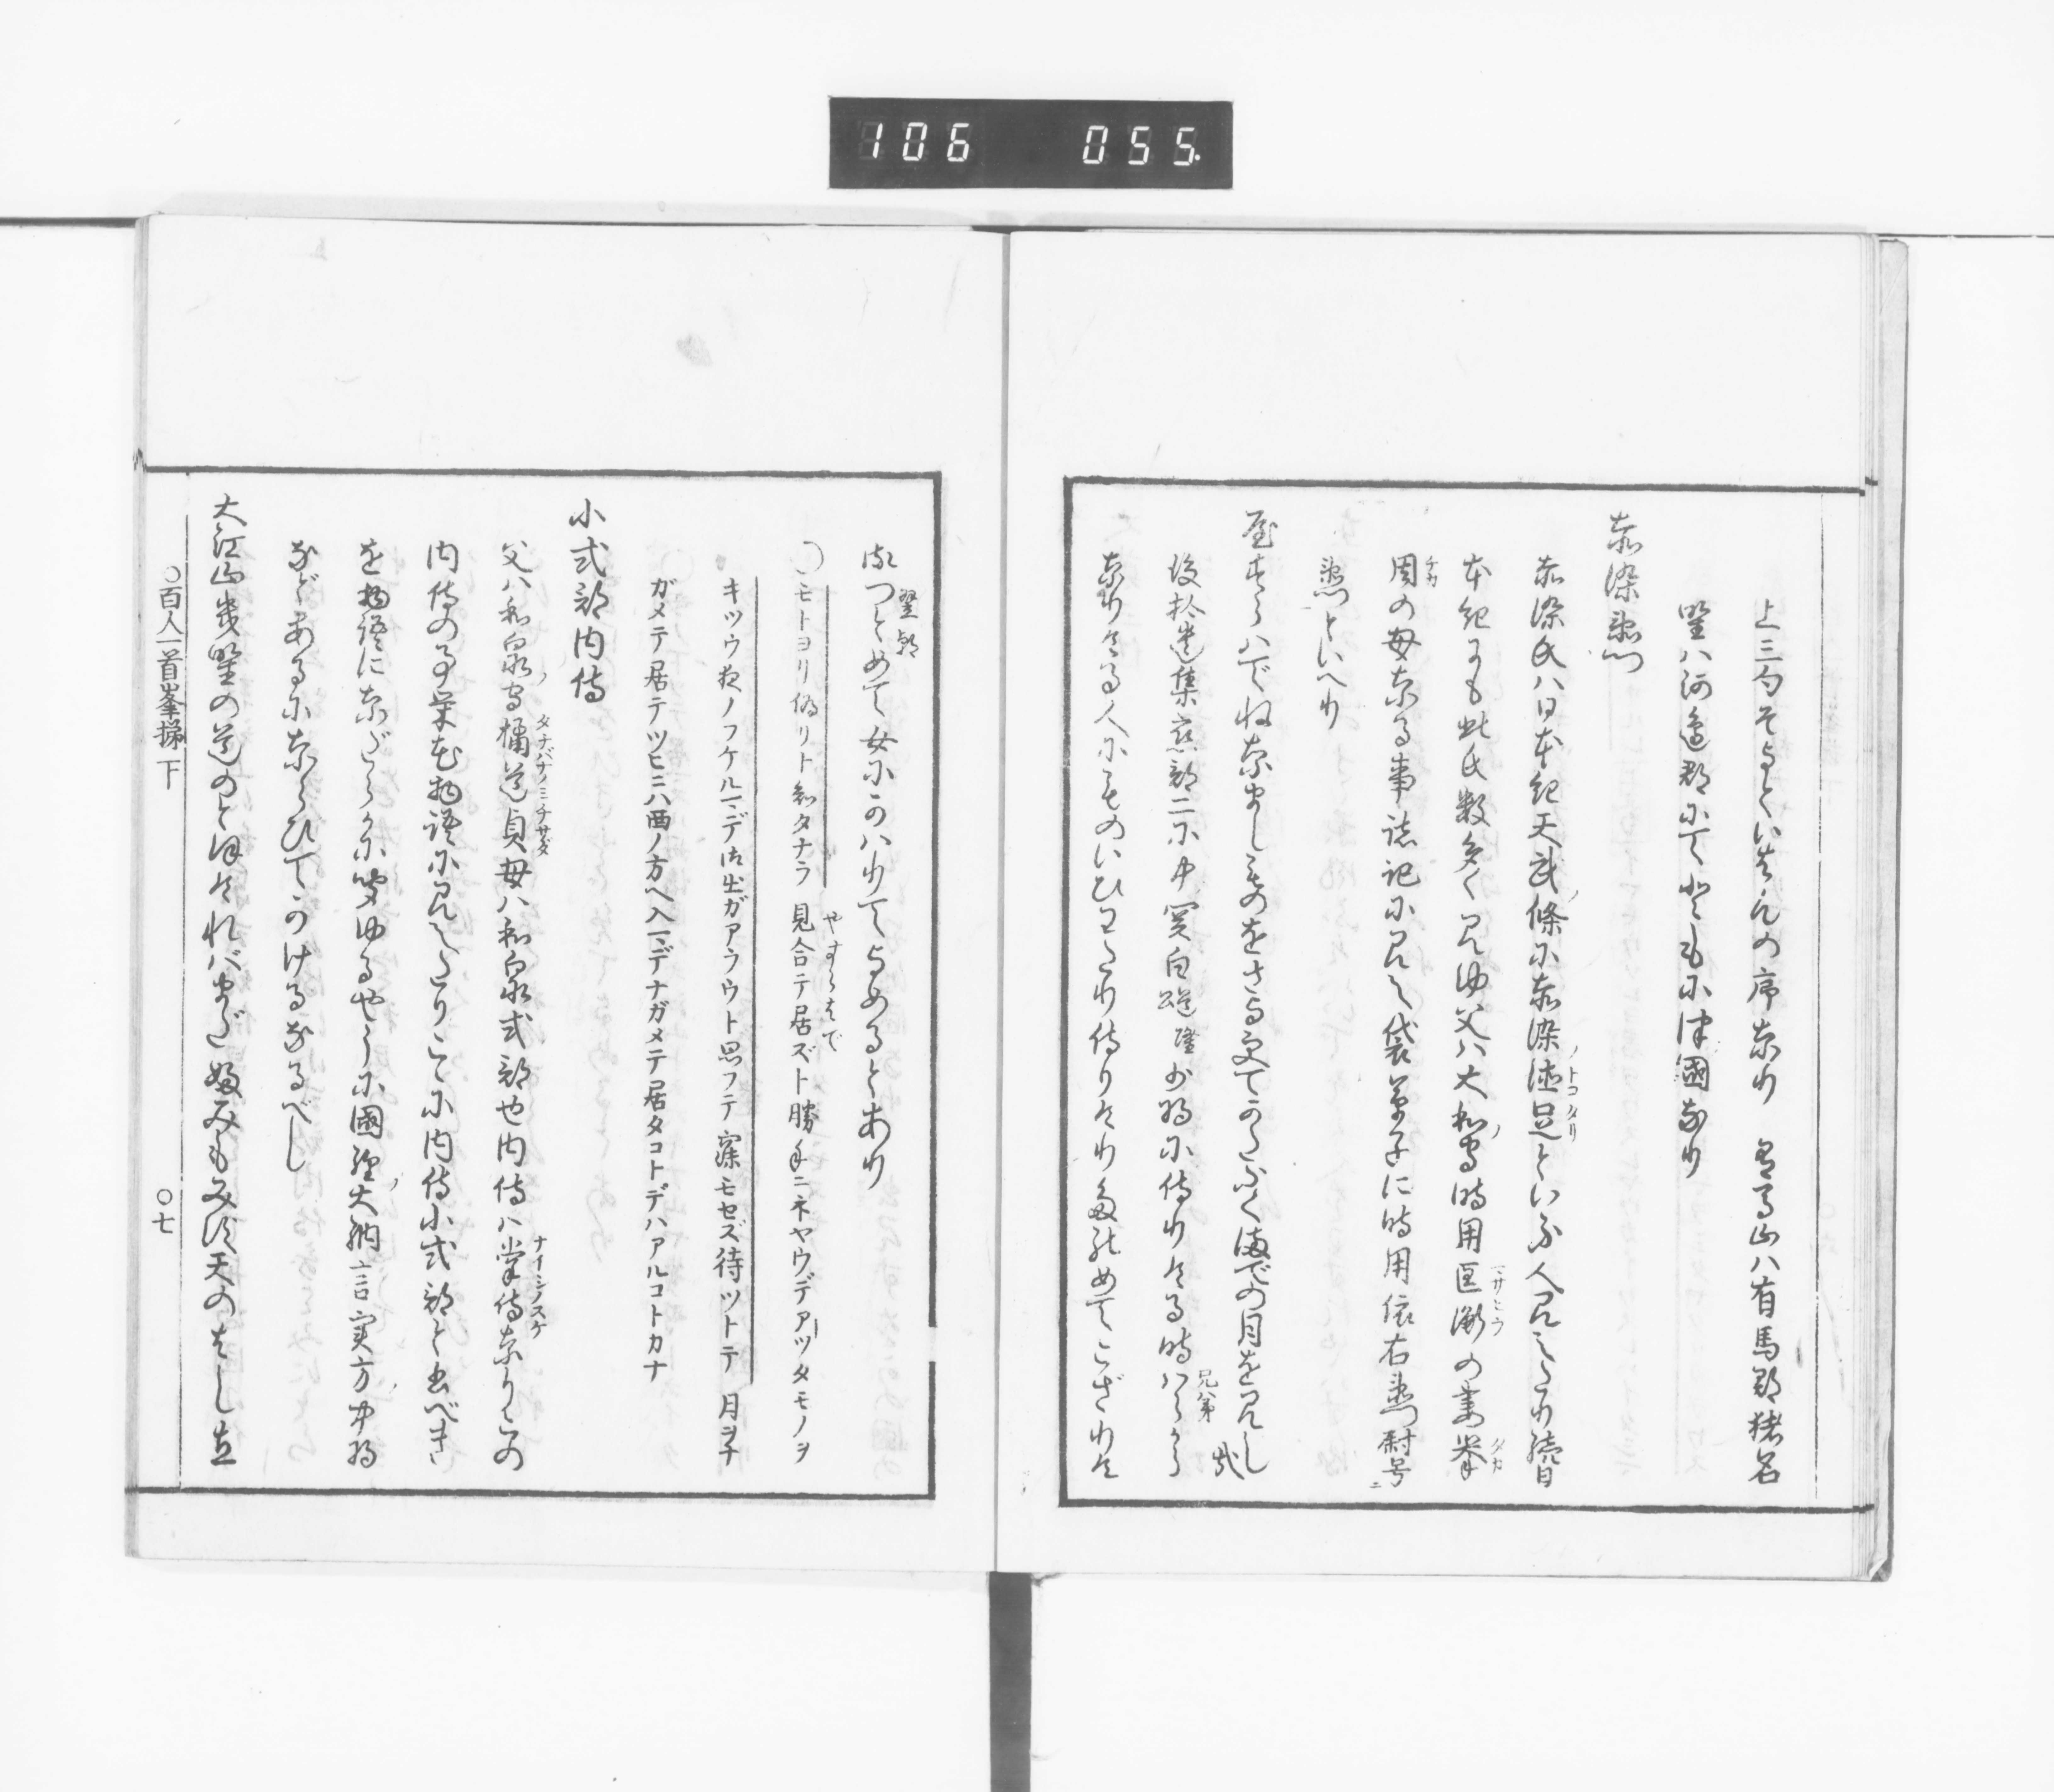 106 055
上三句そよといはん の序なり 有馬山ハ有馬郡猪名
野ハ河邊郡にて ともに津國なり
赤染衛門
赤染氏ハ日本紀天武ノ條に赤染徳足といふ人見えたり續日
ノトコタリ
本紀にも此氏数多く見ゆ父ハ大和ノ守時用匡衡の妻挙
マサヒラ
タカ
周の母なる事諸記に見え袋草子に時用依右衛門尉号ニ
チカ
衛門といへり
屋すらハでねなましものをさよ更てかたふくまでの月を見し哉
後拾遺集恋部二に中ノ関白道隆少将に侍りける時はらから
兄弟
なりける人にものいひわたり侍りけりたのめてこざりけ
るつとめて女にかハりてよめるとあり
翌朝
○モトヨリ偽リト知タナラ 見合テ居ズト勝手ニネヤウデアツタモノヲ
やすらはで
キツウ夜ノフケルマデ御出ガアラウト思フテ 寐モセズ待ツトテ 月ヲナ
ガメテ居テツヒニハ西ノ方ヘ入マデナガメテ居タコトデハアルコトカナ
小式部内侍
父ハ和泉ノ守橘道貞母ハ和泉式部也内侍ハ掌侍なりこの
タチバナノミチサダ
ナイシノスケ
内侍の事栄花物語に見えたりこゝに内侍小式部と出べき
を物語になだらかに聞ゆるやうに國経ノ大納言実方ノ中将
などあるにならひてかけるなるべし
大江山幾野の道のとほけれバまだふみもみず天のはし立
○百人一首峯梯 下
○七